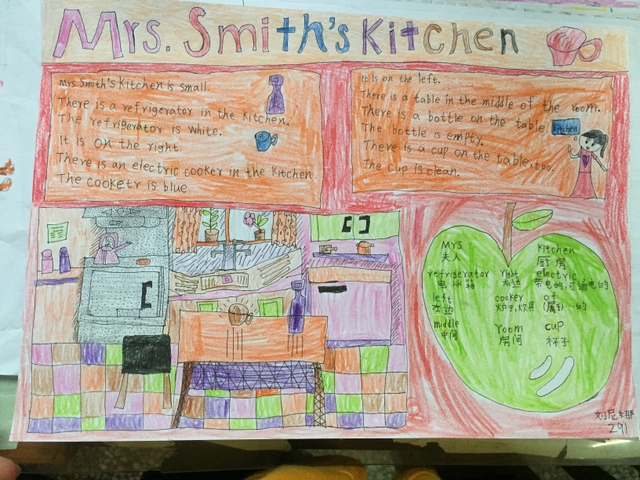 Mrs. Smith's Kitchen
Mrs. Smith's Kitchen is small.
There is a refrigerator in the kitchen.
The refrigerator is white.
It is on the right.
There is an electric cooker in the kitchen
The cooketr is blue
It is on the left.
There is a table in the middle of the room.
There is a bottle on the table.
The bottle is empty.
There is a cup on the table, too.
The cup is clean.
kitchen
Mrs kitchen
夫人 厨房
refrigerator right electric
电冰箱 右边 带电的,可通电的
left cooker of
左边 炉子,炊具 (属于)…的
middle room cup
中间 房间 杯子
291